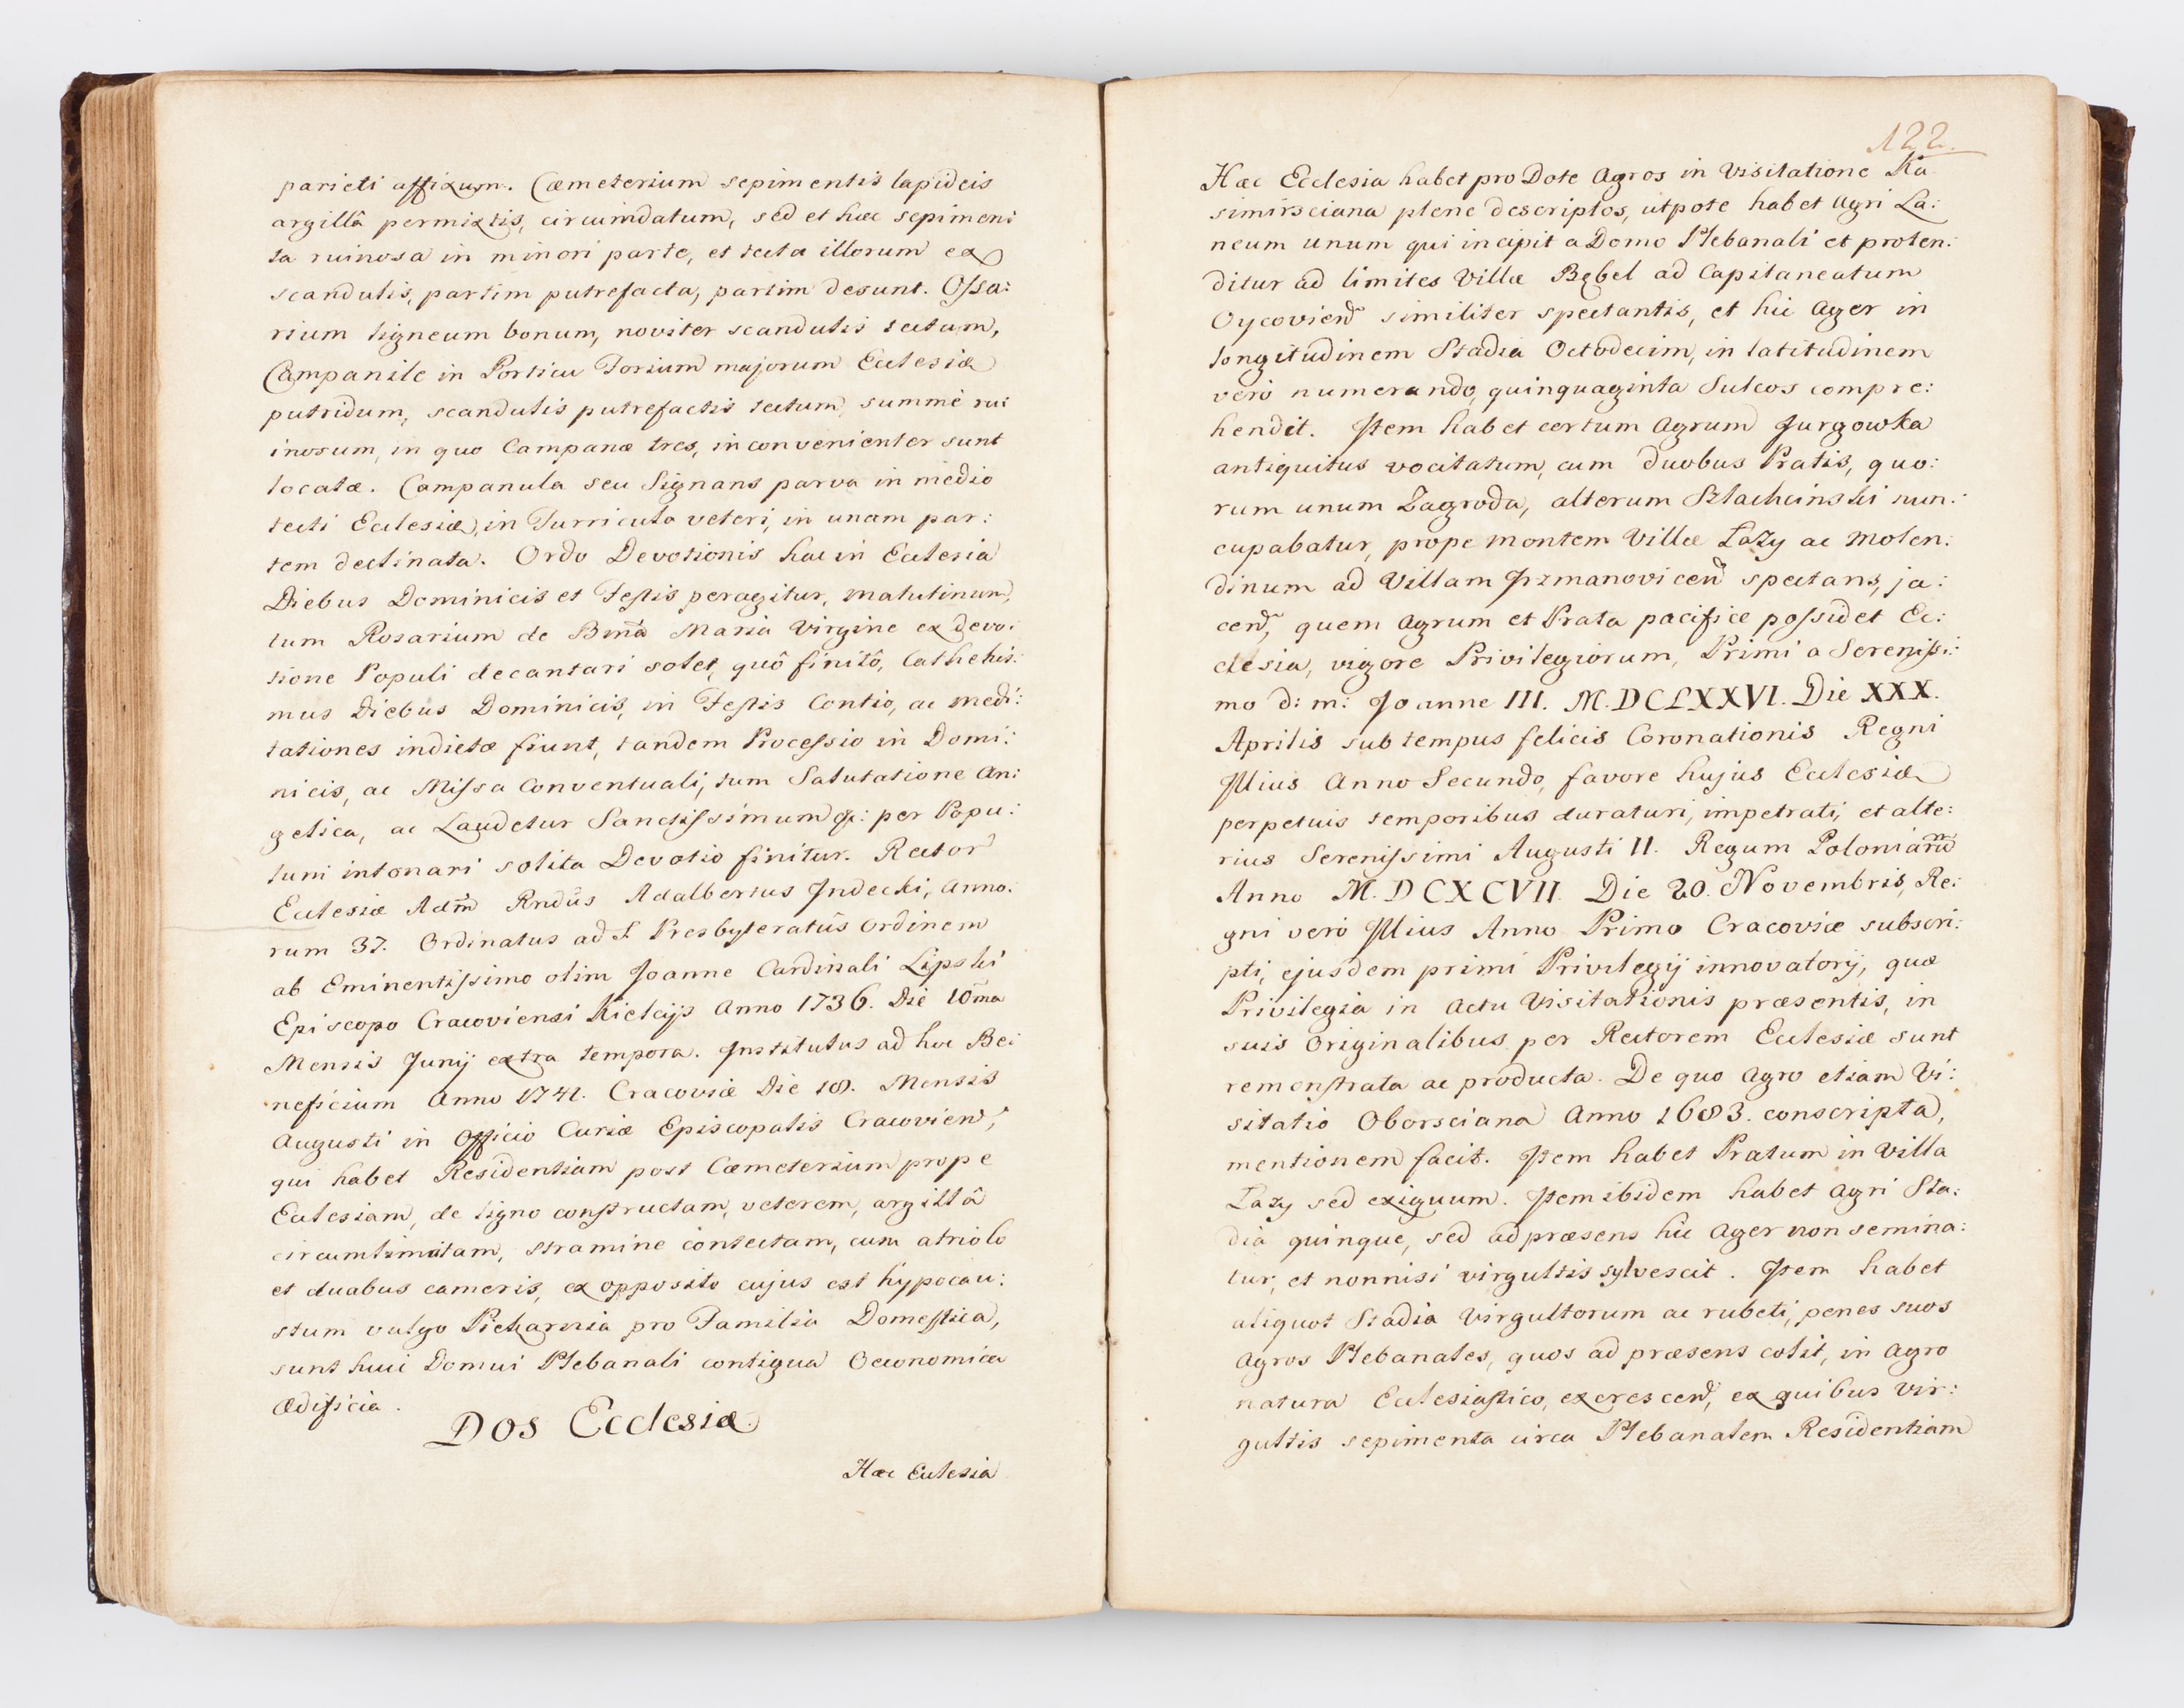 parieti affixum. Cæmeterium sepimentis lapideis
argillâ permixtis, circumdatum, sed et hæc sepimen:
ta ruinosa in minori parte, et tecta illorum ex
scandulis, partim putrefacta, partim desunt. Ossa:
rium ligneum bonum, noviter scandulis tectum,
Campanile in Porticu Forium majorum Ecclesiæ
putridum, scandulis putrefactis tectum, summè ru:
inosum, in quo Campanæ tres, inconvenienter sunt
locatæ. Campanula seu Signans parva in medio
tecti Ecclesiæ, in Turricula veteri, in unam par:
tem declinata. Ordo Devotionis hac in Ecclesia
Diebus Dominicis et Festis peragitur, Matutinum,
tum Rosarium de Bmã Maria Virgine ex devo:
tione Populi decantari solet, quô finitô, Cathehis:
mus Diebus Dominicis, in Festis Contio, ac medi:
tationes indictæ fiunt, tandem Processio in Domi:
nicis, ac Missa Conventuali, tum Salutatione An:
gelica, ac Laudetur Sanctissimum &: per Popu:
lum intonari solita Devotio finitur. Rector
Ecclesiæ Adm̃ Rndũs Adalbertus Indecki, Anno:
rum 37. Ordinatus ad S. Presbyteratũs Ordinem
ab Eminentissimo olim Joanne Cardinali Lipski
Episcopo Cracoviensi Kielcijs Anno 1736. Die 10mã
Mensis Junij extra tempora. Institutus ad hoc Be:
neficium Anno 1741. Cracoviæ Die 18. Mensis
Augusti in Officio Curiæ Episcopalis Cracovien̄,
qui habet Residentiam post Cæmeterium prope
Ecclesiam, de ligno constructam, veterem, argillâ
circumlimitam, stramine contectam, cum atriolo
et duabus cameris, ex opposito cujus est hypocau:
stum vulgo Piekarnia pro Familia Domestica,
sunt huic Domui Plebanali contigua Oeconomica
Ædificia.
DOS Ecclesiæ.
Hæc Ecclesia
122.
Hæc Ecclesia habet pro Dote Agros in Visitatione Ka
simirsciana plene descriptos, utpote habet Agri La:
neum unum qui incipit a Domo Plebanali et proten:
ditur ad limites Villæ Bębel ad Capitaneatum
Oycovien̄ similiter spectantis, et hic Ager in
longitudinem Stadia Octodecim, in latitudinem
verò numerando, quinquaginta Sulcos compre:
hendit. Item habet certum Agrum Jurgowka
antiquitus vocitatum, cum duobus Pratis, quo:
rum unum Zagroda, alterum Szlachcinski nun:
cupabatur, prope montem Villæ Łazy ac Molen:
dinum ad Villam Jrzmanovicen̄ spectans, ja:
cen̄, quem Agrum et Prata pacificè possidet Ec:
clesia, vigore Privilegiorum, Primi a Serenissi:
mo d: m: Joanne III. M.DCLXXVI. Die XXX.
Aprilis sub tempus felicis Coronationis Regni
Illius Anno Secundo, favore hujus Ecclesiæ
perpetuis temporibus duraturi, impetrati, et alte:
rius Serenissimi Augusti II. Regum Poloniarm̃
Anno M.DCXCVII. Die 20. Novembris, Re:
gni verò Illius Anno Primo Cracoviæ subscri:
pti, ejusdem primi Privilegij innovatorij, quæ
Privilegia in Actu Visitationis præsentis, in
suis Originalibus per Rectorem Ecclesiæ sunt
remonstrata ac producta. De quo Agro etiam Vi:
sitatio Oborsciana Anno 1683. conscripta,
mentionem facit. Item habet Pratum in Villa
Łazy sed exiguum. Item ibidem habet Agri Sta:
dia quinque, sed ad præsens hic Ager non semina:
tur, et nonnisi virgultis sylvescit. Item habet
aliquot Stadia Virgultorum ac rubeti, penes suos
Agros Plebanales, quos ad præsens colit, in Agro
natura Ecclesiastico, excrescen̄, ex quibus Vir:
gultis sepimenta circa Plebanalem Residentiam